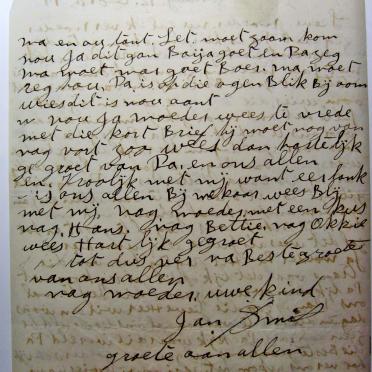 ma en ou tant. Let moet zaam kom
nou Ja dit gan Baija goet in Pazeg
ma moet mar goet Boer. ma moet
reg hou. Pa, is op die ogen Blik Bij oom
wiesdit is nou aant
n nou Ja moeder wees te vrede
met die kort Brief Bij moet nog van
nag vort zoo wees dan hartelijk
ge groet van Pa, en ons allen
en Froolijk met mij want eersdank
is ons allen Bij mekaar wees Blij
met mij, nag, moeder met een kus
nag, Hans, nag Bettie, nag Okkie
wees Hart lijk gegroet
tot dus ver na Beste groete
van ons allen
nag moeder, uwe kind
Jan Smit
groete aan allen